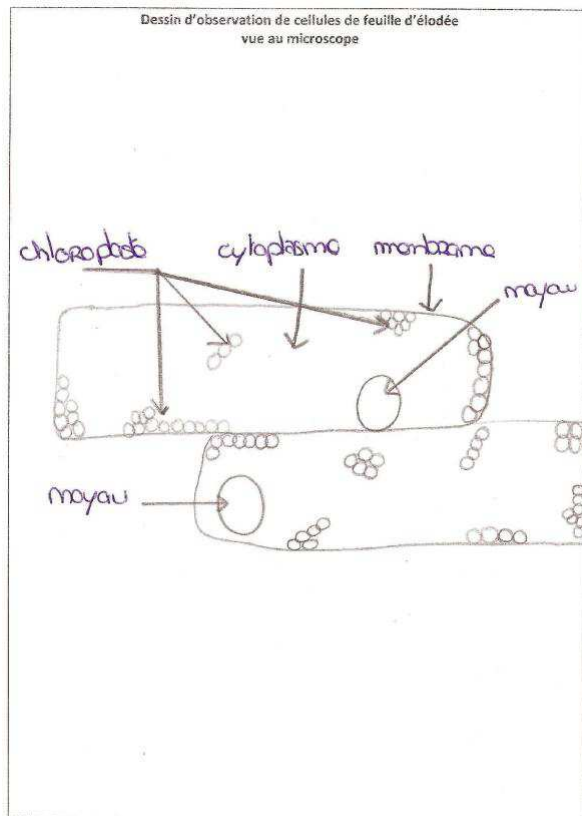 Dessin d'observation de cellules de feuille d'élodée
vue au microscope
chloroplaste
cytoplasme
membrane
noyau
noyau